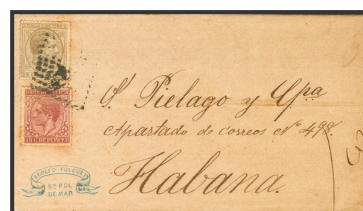 S. Pielago y Cpa
Apartado de Correos Nº 498.
Habana.
ADOLFO
Sn POL
DE MAR